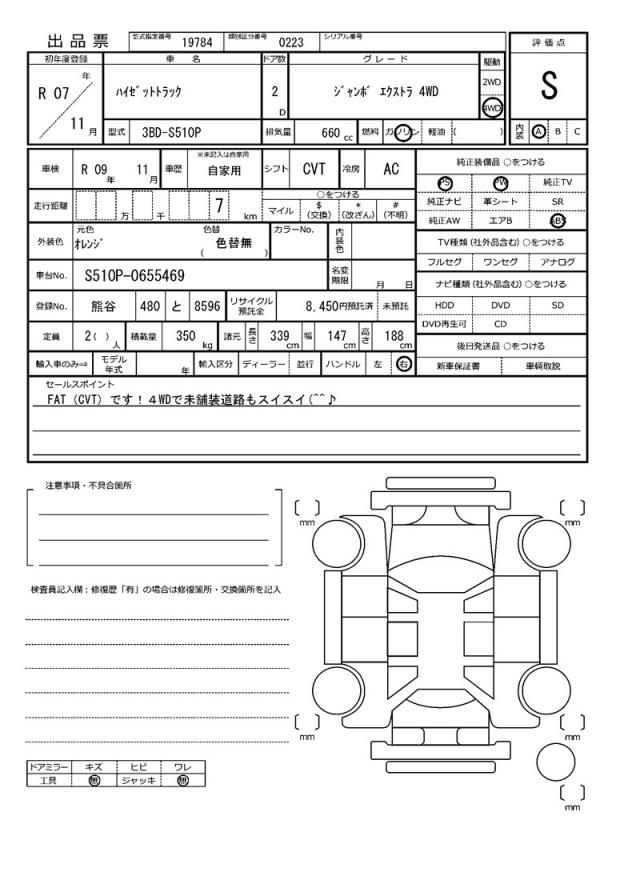 出品票 型式指定番号 19784 類別区分番号 0223 シリアル番号
初年度登録 車名 ドア数 グレード 駆動 評価点
R 07 年 11 月 ﾊｲｾﾞｯﾄﾄﾗｯｸ 2 D ｼﾞｬﾝﾎﾞ ｴｸｽﾄﾗ 4WD 2WD 4WD S
型式 3BD-S510P 排気量 660 cc 燃料 ガソリン 軽油 ( ) 内装 A B C
車検 R 09 年 11 月 車歴 ※未記入は自家用 自家用 シフト CVT 冷房 AC 純正装備品 ○をつける
PS PW 純正TV
走行距離 万 千 7 km ○をつける 純正ナビ 革シート SR
マイル $ (交換) * (改ざん) # (不明) 純正AW エアB ABS
外装色 元色 ｵﾚﾝｼﾞ 色替 色替無 ( ) カラーNo. 内装色 TV種類 (社外品含む) ○をつける
フルセグ ワンセグ アナログ
車台No. S510P-0655469 名変期限 月 日 ナビ種類 (社外品含む) ○をつける
登録No. 熊谷 480 と 8596 リサイクル預託金 8,450円預託済 未預託 HDD DVD SD
DVD再生可 CD
定員 2( ) 人 積載量 350 kg 諸元 長さ 339 cm 幅 147 cm 高さ 188 cm 後日発送品 ○をつける
輸入車のみ⇒ モデル年式 年 輸入区分 ディーラー 並行 ハンドル 左 右 新車保証書 車輌取説
セールスポイント
FAT (CVT) です！４WDで未舗装道路もスイスイ(^^♪
注意事項・不具合箇所
mm mm
検査員記入欄：修復歴「有」の場合は修復箇所・交換箇所を記入
mm mm
ドアミラー キズ ヒビ ワレ
工具 無 ジャッキ 無
mm